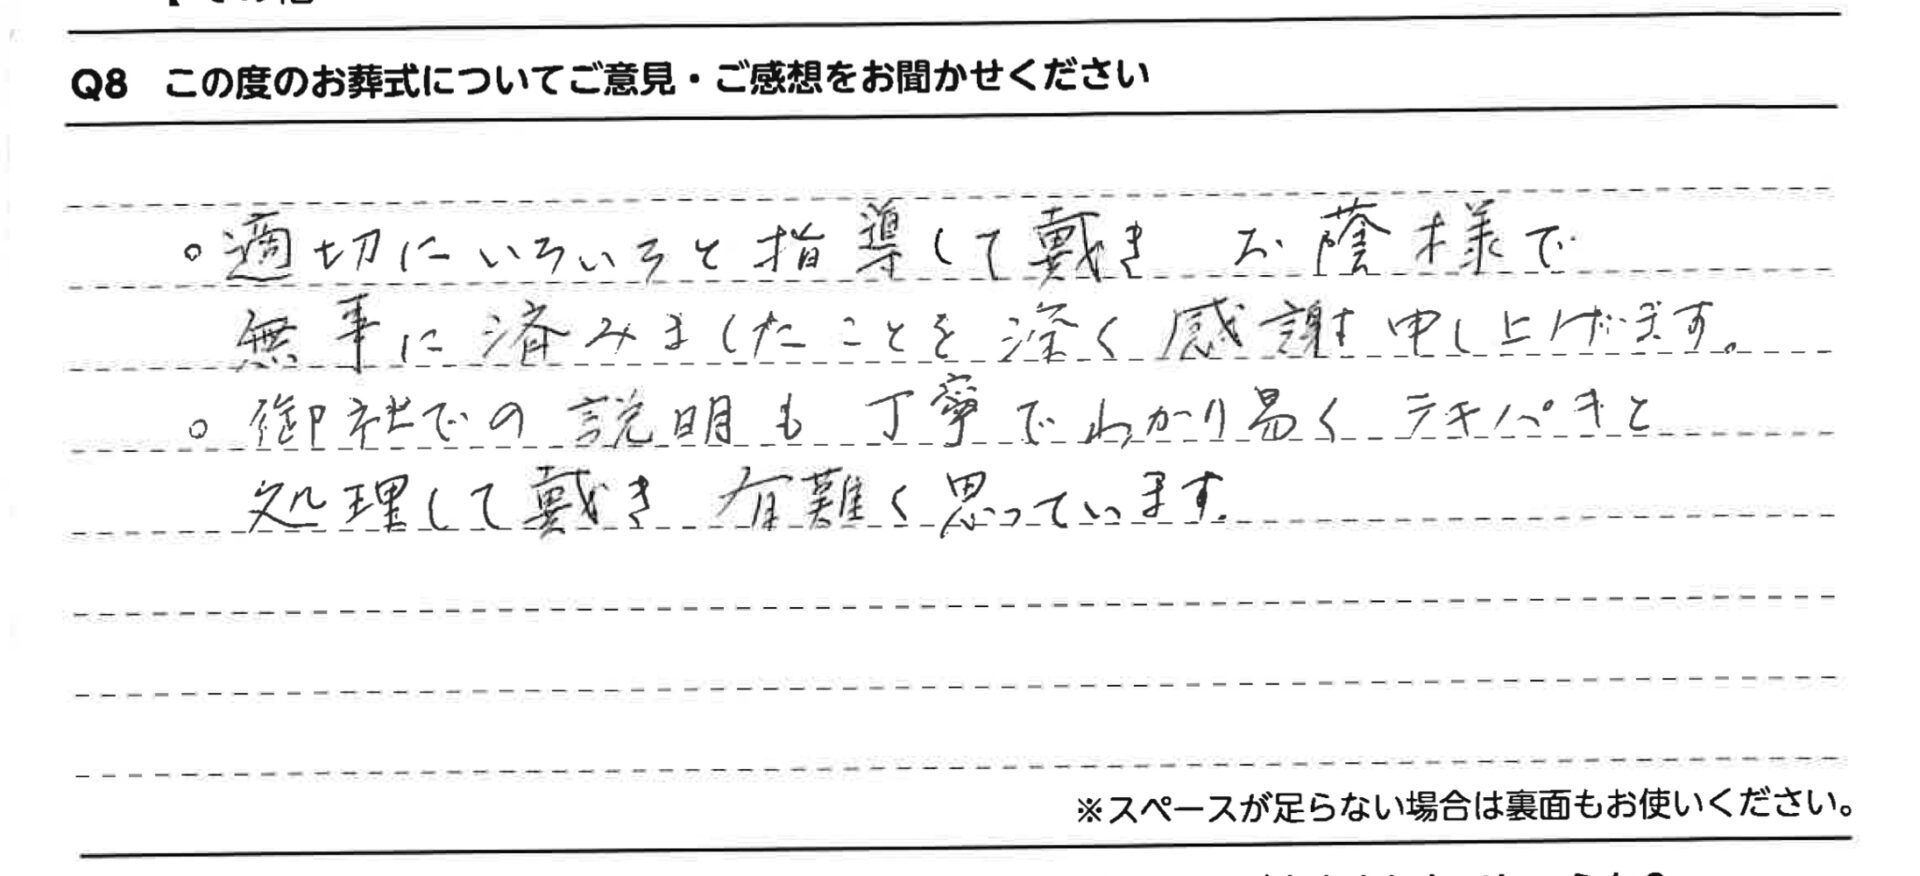 Q8 この度のお葬式についてご意見・ご感想をお聞かせください
○適切にいろいろと指導して戴き お蔭様で
無事に済みましたことを深く感謝申し上げます。
○御社での説明も丁寧でわかり易くテキパキと
処理して戴き 有難く思っています.
※スペースが足らない場合は裏面もお使いください。